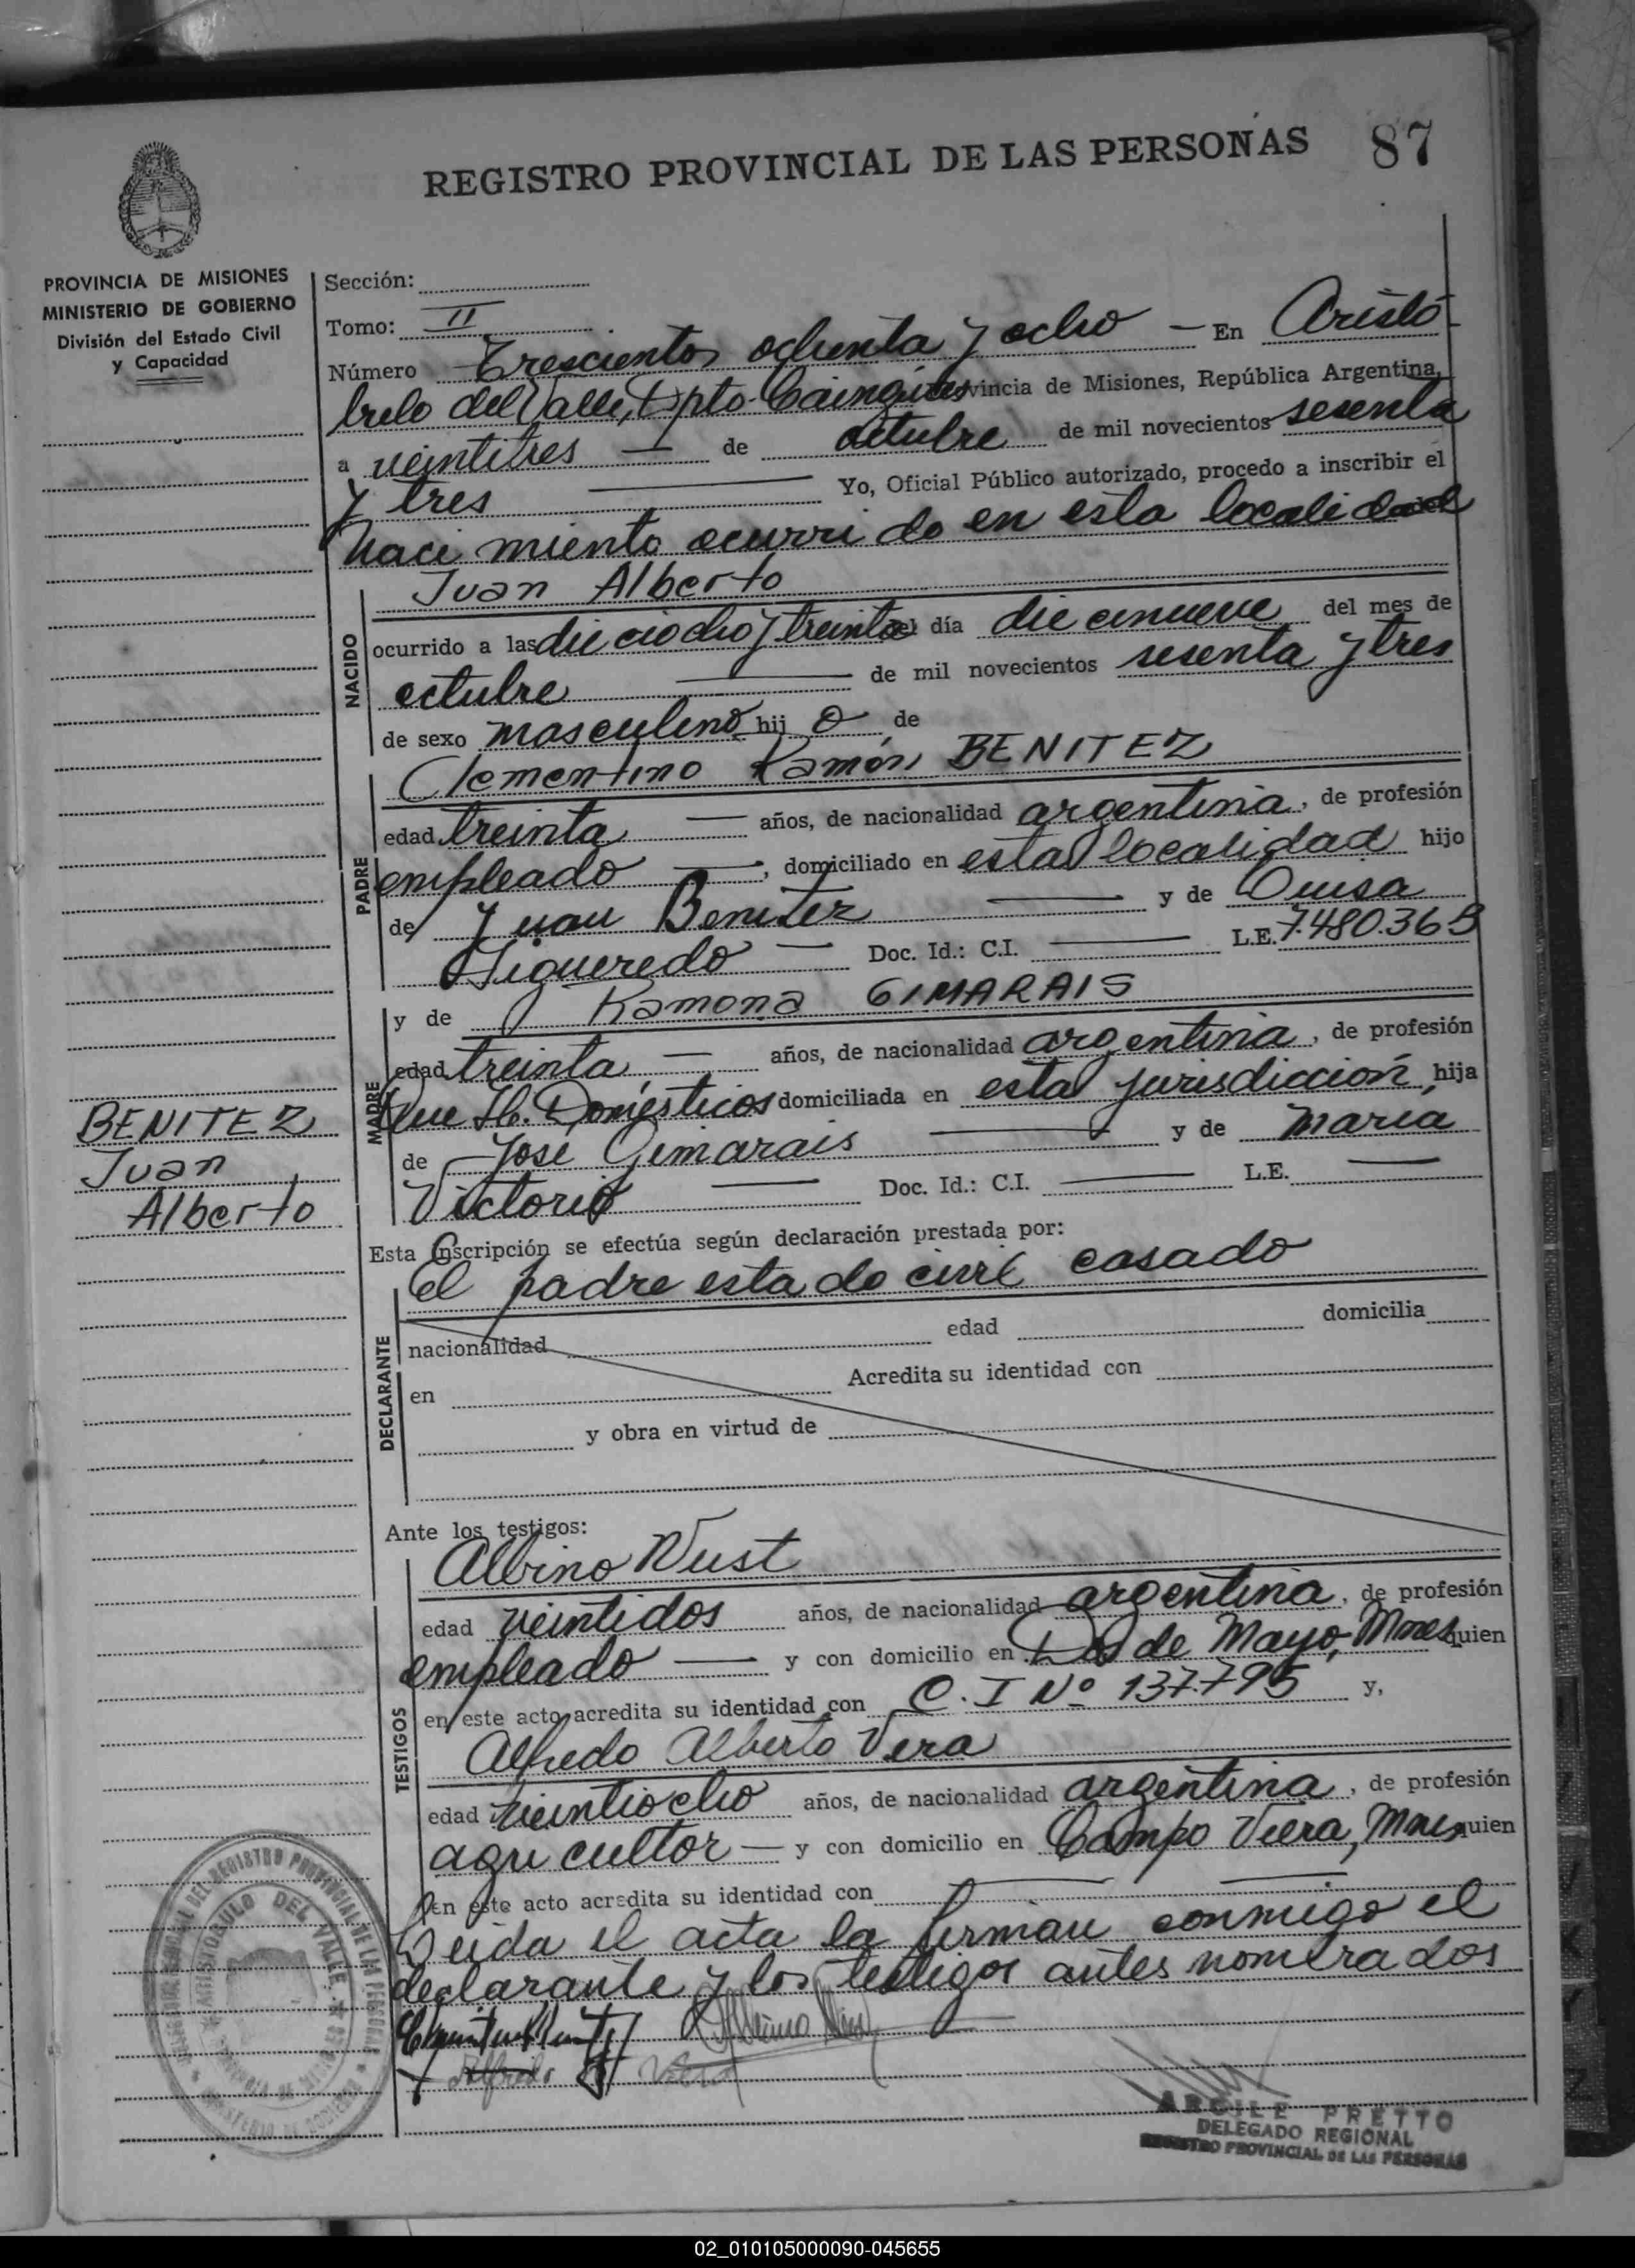 REGISTRO PROVINCIAL DE LAS PERSONAS 87
PROVINCIA DE MISIONES
MINISTERIO DE GOBIERNO
División del Estado Civil
y Capacidad
Sección:
Tomo: II
Número Trescientos ochenta y ocho — En Aristó-
bulo del Valle, Dpto. Cainguás Provincia de Misiones, República Argentina,
a veintitres — de octubre de mil novecientos sesenta
y tres — Yo, Oficial Público autorizado, procedo a inscribir el
Nacimiento ocurrido en esta localidad
NACIDO
Juan Alberto
ocurrido a las dieciocho y treinta el día diecinueve del mes de
octubre — de mil novecientos sesenta y tres
de sexo masculino hijo de
PADRE
Clementino Ramón BENITEZ
edad treinta — años, de nacionalidad argentina, de profesión
empleado —, domiciliado en esta localidad hijo
de Juan Benitez — y de Luisa
Figueredo — Doc. Id.: C.I. — L.E. 7.480.369
MADRE
y de Ramona GIMARAIS
edad treinta, — años, de nacionalidad argentina, de profesión
Que Hb. Domésticos domiciliada en esta jurisdicción, hija
de José Gimarais — y de María
Victorio — Doc. Id.: C.I. — L.E. —
BENITEZ
Juan
Alberto
Esta inscripción se efectúa según declaración prestada por:
DECLARANTE
El padre estado civil casado
nacionalidad edad domicilia
en Acredita su identidad con
y obra en virtud de
Ante los testigos:
TESTIGOS
Albino Wust
edad veintidos años, de nacionalidad argentina, de profesión
empleado — y con domicilio en Dos de Mayo, Mnes quien
en este acto acredita su identidad con C. I Nº 137.795 y,
Alfredo Alberto Vera
edad veintiocho años, de nacionalidad argentina, de profesión
agricultor — y con domicilio en Campo Viera, Mnes quien
en este acto acredita su identidad con —
Leida el acta la firman conmigo el
declarante y los testigos antes nombrados
Alfredo Vera
ARCILE PRETTO
DELEGADO REGIONAL
REGISTRO PROVINCIAL DE LAS PERSONAS
DEL REGISTRO PROVINCIAL DE LAS PERSONAS
ARISTOBULO DEL VALLE
MINISTERIO DE GOBIERNO
02_010105000090-045655